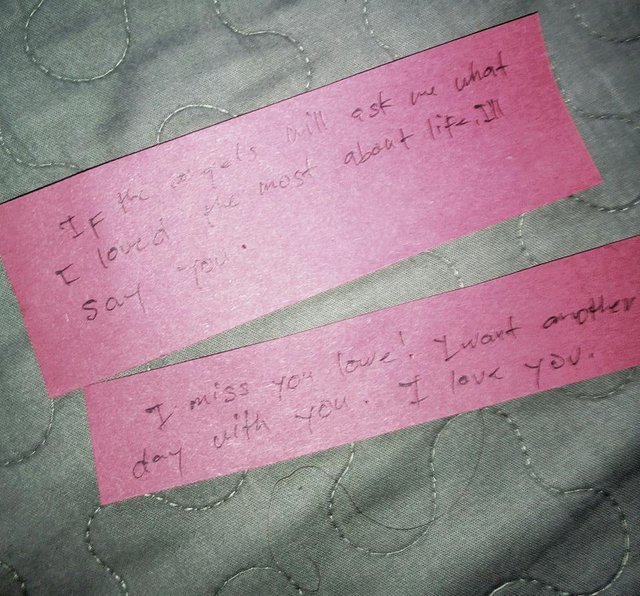 If the angels will ask me what
I loved the most about life, I'll
say you.
I miss you love! I want another
day with you. I love you.